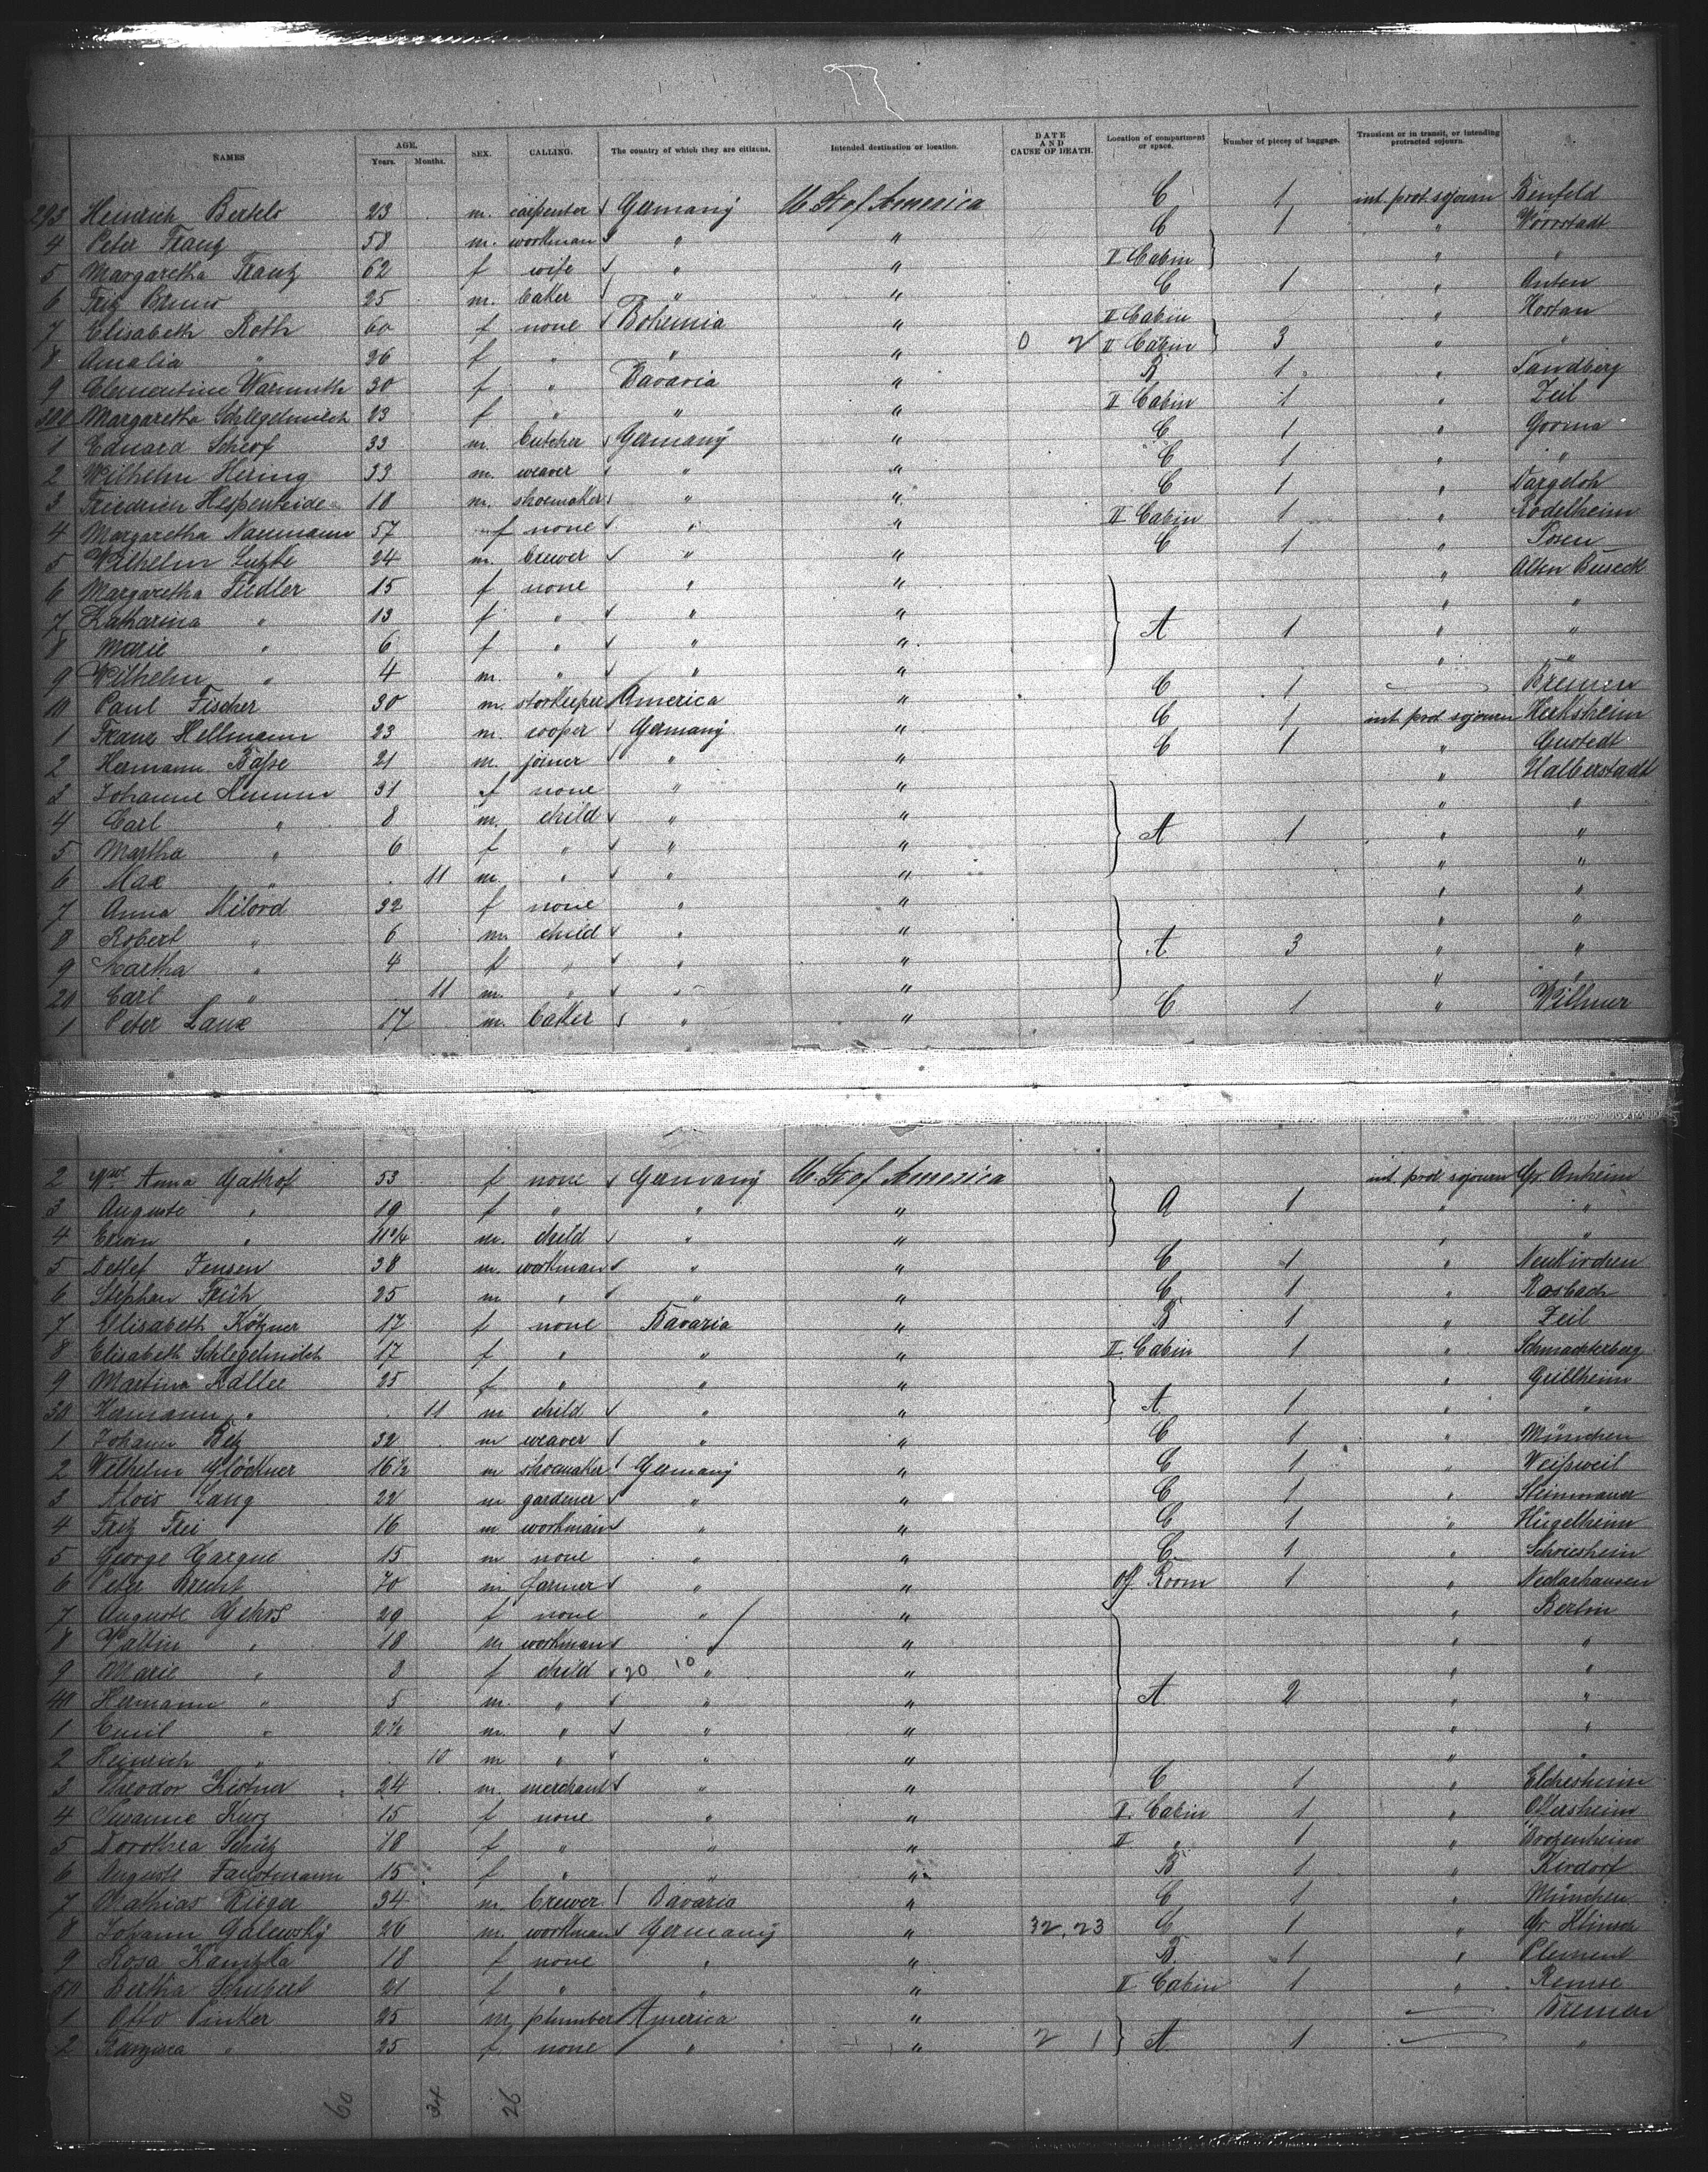 NAMES AGE. Years. Months. SEX. CALLING. The country of which they are citizens. Intended destination or location. DATE AND CAUSE OF DEATH. Location of compartment or space. Number of pieces of baggage. Transient or in transit, or intending protracted sojourn.
293 Heinrich Bertels 23 m. carpenter Germany U. St of America C 1 int prot sojourn Binfeld
4 Peter Franz 58 m. workman " " C 1 " Wörrstadt
5 Margaretha Frantz 62 f wife " " II Cabin " "
6 Fritz Bruns 25 m. baker " " C 1 " Anten
7 Elisabeth Roth 60 f none Bohemia " II Cabin " Hostan
8 Amalia " 26 f " " " 0 2 II Cabin 3 " "
9 Clementine Warmuth 30 f " Bavaria " B 1 " Sandberg
300 Margaretha Schlegelmilch 23 f " " " II Cabin 1 " Zeil
1 Eduard Schrof 33 m. butcher Germany " C 1 " Gorma
2 Wilhelm Hering 33 m. weaver " " C 1 " "
3 Friedrich Hespenheide 18 m. shoemaker " " C 1 " Dargeloh
4 Margaretha Naumann 57 f none " " II Cabin 1 " Rödelheim
5 Wilhelm Lutzke 24 m. brewer " " C 1 " Posen
6 Margaretha Fiedler 15 f none " " " Alten Buseck
7 Katharina " 13 f " " " A 1 " "
8 Marie " 6 f " " " " "
9 Wilhelm " 4 m. " " " " "
10 Paul Fischer 30 m. storkeeper America " C 1 Bremen
1 Franz Hellmann 23 m. cooper Germany " C 1 int prot sojourn Herksheim
2 Hermann Basse 21 m. joiner " " C 1 " Gustedt
3 Johanne Humm 31 f none " " " Halberstadt
4 Carl " 8 m. child " " A 1 " "
5 Martha " 6 f " " " " "
6 Max " 11 m. " " " " "
7 Anna Milord 32 f none " " " "
8 Robert " 6 m. child " " A 3 " "
9 Martha " 4 f " " " " "
20 Carl " 11 m. " " " " "
1 Peter Laux 17 m. baker " " C 1 " Wilmer
2 Wwe Anna Gathof 53 f none Germany U. St of America int prot sojourn Gr. Anheim
3 Auguste " 19 f " " " A 1 " "
4 Erwin " 11 m. child " " " "
5 Detlef Jensen 38 m. workman " " C 1 " Neukirchen
6 Stephan Früh 25 m " " " C 1 " Rosbach
7 Elisabeth Kötzner 17 f none Bavaria " B 1 " Zeil
8 Elisabeth Schlegelmilch 17 f " " " II Cabin 1 " Schmachterberg
9 Martina Adller 25 f " " " " Grillheim
30 Hermann " 11 m child " " A 1 " "
1 Johann Betz 32 m weaver " " C 1 " München
2 Wilhelm Glöckner 16½ m shoemaker Germany " C 1 " Weissweil
3 Alois Lang 22 m gardener " " C 1 " Steinmauer
4 Fritz Frei 16 m workman " " C 1 " Hügelheim
5 George Gargue 15 m none " " C 1 " Schriesheim
6 Peter Brecht 70 m farmer " " Off Room 1 " Neckarhausen
7 Auguste Gehrs 29 f none " " " Berlin
8 Valtin " 18 m workman " " " "
9 Marie " 8 f child 20 10 " " " "
40 Hermann " 5 m. " " " A 2 " "
1 Emil " 2½ m. " " " " "
2 Heinrich " 10 m " " " " "
3 Theodor Kistner 24 m. merchant " " C 1 " Elchesheim
4 Susanne Kurz 15 f none " " II. Cabin 1 " Ottersheim
5 Dorothea Schütz 18 f " " " II " 1 " Brotzenheim
6 Auguste Faustmann 15 f " " " B 1 " Kirdorf
7 Mathias Rieger 34 m. brewer Bavaria " C 1 " München
8 Johann Galewsky 26 m. workman Germany " 32.23 C 1 " Gr. Klinsch
9 Rosa Kamitzka 18 f none " " B. 1 " Plement
50 Bertha Schubert 21 f " " " II Cabin 1 " Remse
1 Otto Pinker 25 m plumber America " Bremen
2 Franzisca " 25 f none " " 2 1 A 1 "
60 34 26